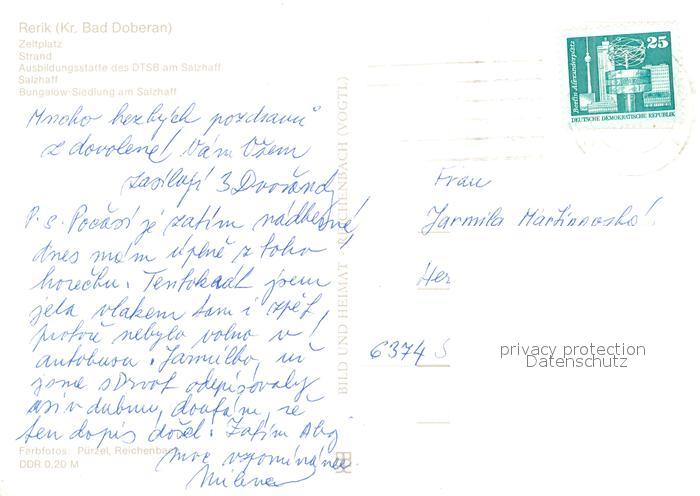 Rerik (Kr. Bad Doberan)
Zeltplatz
Strand
Ausbildungsstätte des DTSB am Salzhaff
Salzhaff
Bungalow-Siedlung am Salzhaff
Mnoho hezkých pozdravů
z dovolené Vám Všem
zasílají 3 Dvořandy
P.S. Počasí je zatím nádherné
dnes mám úplně z toho
horečku. Tentokrát jsem
jela vlakem tam i zpět,
protože nebylo volno v
autobusu. Jarmilko, už
jsme odepisovaly
asi v dubnu, doufám, že
ten dopis došel. Zatím Ahoj
moc vzpomínáme
Milena
Farbfotos: Pürzel, Reichenbach
DDR 0,20 M
BILD UND HEIMAT · REICHENBACH (VOGTL)
Berlin Alexanderplatz
25
DEUTSCHE DEMOKRATISCHE REPUBLIK
Frau
Jarmila Martinovská
Her
6374 S
privacy protection
Datenschutz